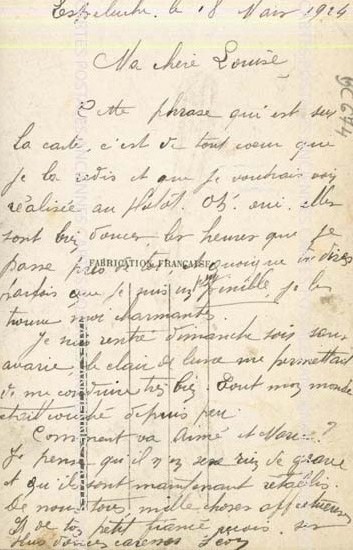 Espeluche. le 18 Mars 1924
Ma chère Louise
Cette phrase qui est sur
la carte, c'est de tout cœur que
je la redis et que je voudrais voir
réalisée au plutôt. Oh! oui, elles
sont bien douces, les heures que je
passe près de toi, quoique tu dises
parfois que je suis un
trouve moi charmantes.
Je suis rentré dimanche soir sans
avarie, le clair de lune me permettant
de me conduire très bien. Tout mon monde
était couché depuis peu
Comment va Aimé et Marie?
Je pense qu'il n'y sera rien de grave
et qu'ils sont maintenant rétablis.
De nous tous mille choses affectueuses
Et de ton petit fiancé reçois ses
plus douces caresses Léon
FABRICATION FRANÇAISE